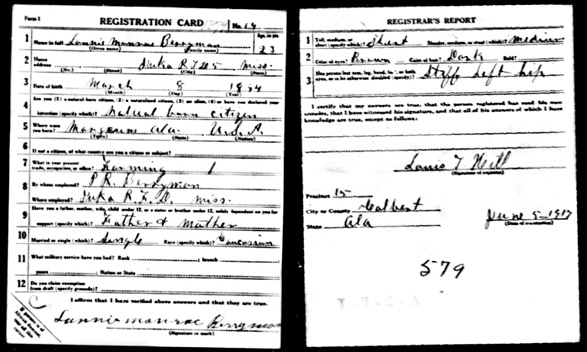 Form 1
REGISTRATION CARD
No. 19
1 Name in full Lonnie Monroe Berryman Age, in yrs. 23
(Given name) (Family name)
2 Home address Iuka R F D 5 Miss.
(No.) (Street) (City) (State)
3 Date of birth March 8
(Month) (Day) (Year)
4 Are you (1) a natural-born citizen, (2) a naturalized citizen, (3) an alien, (4) or have you declared your
intention (specify which)? Natural born citizen
5 Where were you born? Ala. U.S.A.
(Town) (State) (Nation)
6 If not a citizen, of what country are you a citizen or subject?
7 What is your present trade, occupation, or office? Farming
8 By whom employed? P.R. Berryman
Where employed? Iuka R.F.D. Miss.
9 Have you a father, mother, wife, child under 12, or a sister or brother under 12, solely dependent on you for
support (specify which)? Father & Mother
10 Married or single (which)? Single Race (specify which)? Caucasian
11 What military service have you had? Rank ; branch
years ; Nation or State
12 Do you claim exemption from draft (specify grounds)?
I affirm that I have verified above answers and that they are true.
Lonnie Monroe Berryman
(Signature or mark)
REGISTRAR'S REPORT
1 Tall, medium, or short (specify which)? Short Slender, medium, or stout (which)? Medium
2 Color of eyes? Brown Color of hair? Dark Bald?
3 Has person lost arm, leg, hand, foot, or both eyes, or is he otherwise disabled (specify)? Stiff left hip
I certify that my answers are true, that the person registered has read his own
answers, that I have witnessed his signature, and that all of his answers of which I have
knowledge are true, except as follows:
Louis T Neill
(Signature of registrar)
Precinct 15
City or County Colbert
State Ala
June 5-1917
(Date of registration)
579